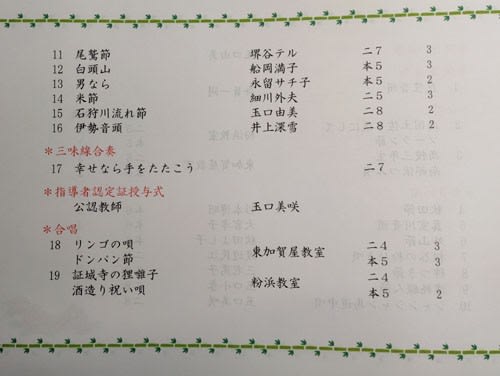 11 尾鷲節 堺谷テル 二7 3
12 白頭山 船岡満子 本5 3
13 男なら 永留サチ子 本5 2
14 米節 細川外夫 二5 3
15 石狩川流れ節 玉口由美 二8 2
16 伊勢音頭 井上深雪 二8 2
*三味線合奏
17 幸せなら手をたたこう 二7
*指導者認定証授与式
公認教師 玉口美咲
*合唱
18 リンゴの唄 東加賀屋教室 二4 3
ドンパン節 本5 3
19 証城寺の狸囃子 粉浜教室 二4
酒造り祝い唄 本5 2